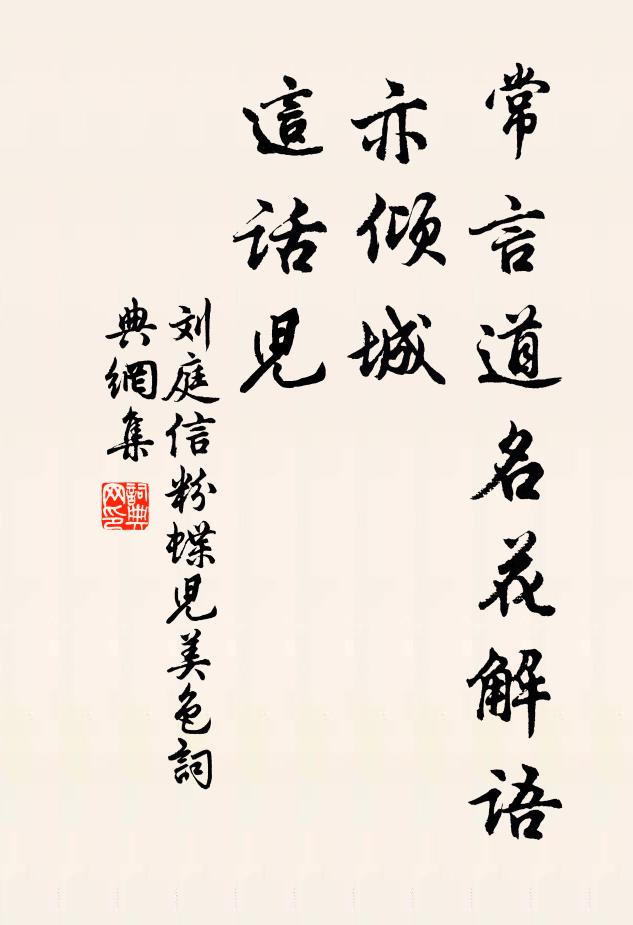 常言道名花解语
亦倾城
這話兒
刘庭信粉蝶兒美色詞
典網集
詞典网印